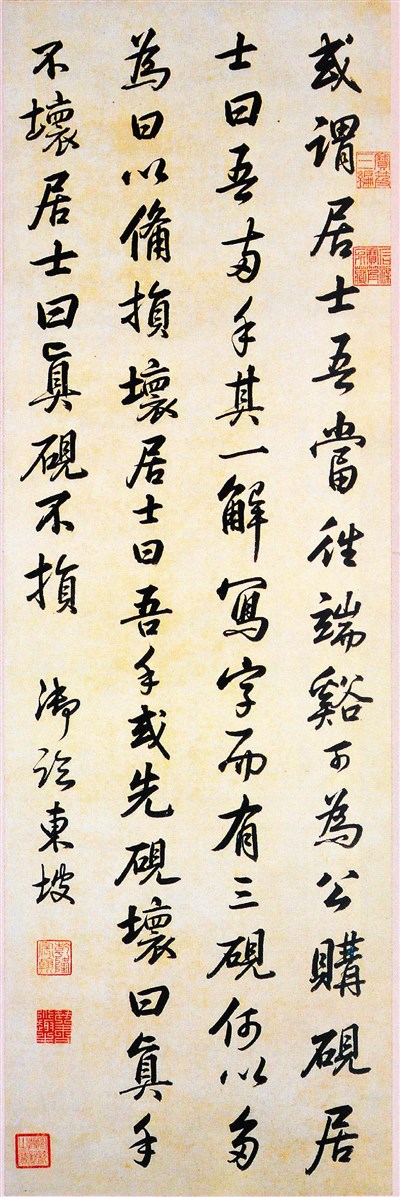 或謂居士吾當往端谿可為公購硯居
士曰吾兩手其一解寫字而有三硯何以多
為曰以備損壞居士曰吾手或先硯壞曰眞手
不壞居士曰眞硯不損 御臨東坡
寶笈三編
乾隆宸翰